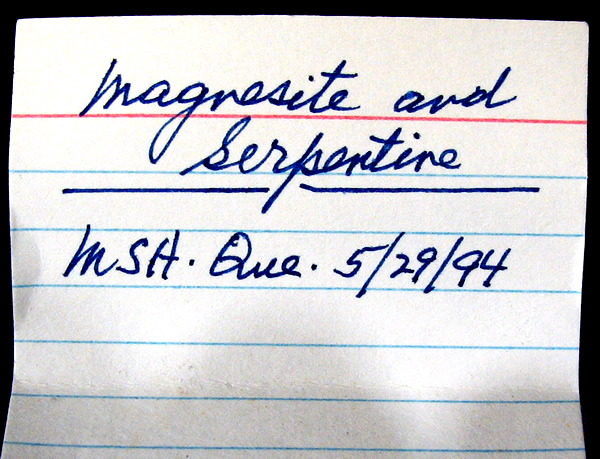 Magnesite and
Serpentine
MSH. Que. 5/29/94